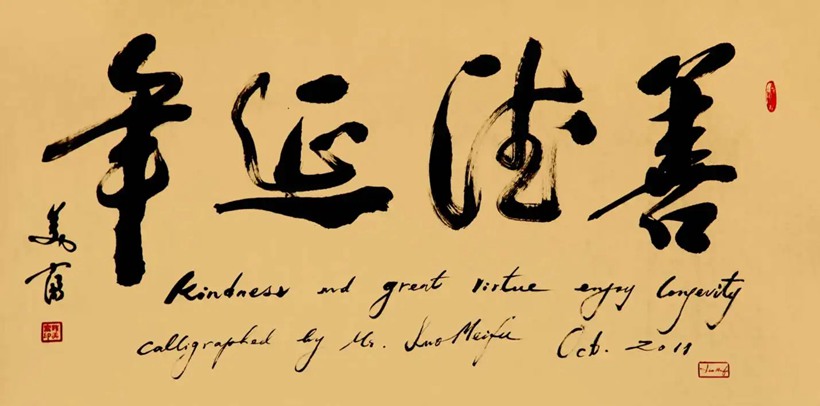 善德延年
美富
Kindness and great virtue enjoy longevity
calligraphed by Mr. Luo Meifu Oct. 2011